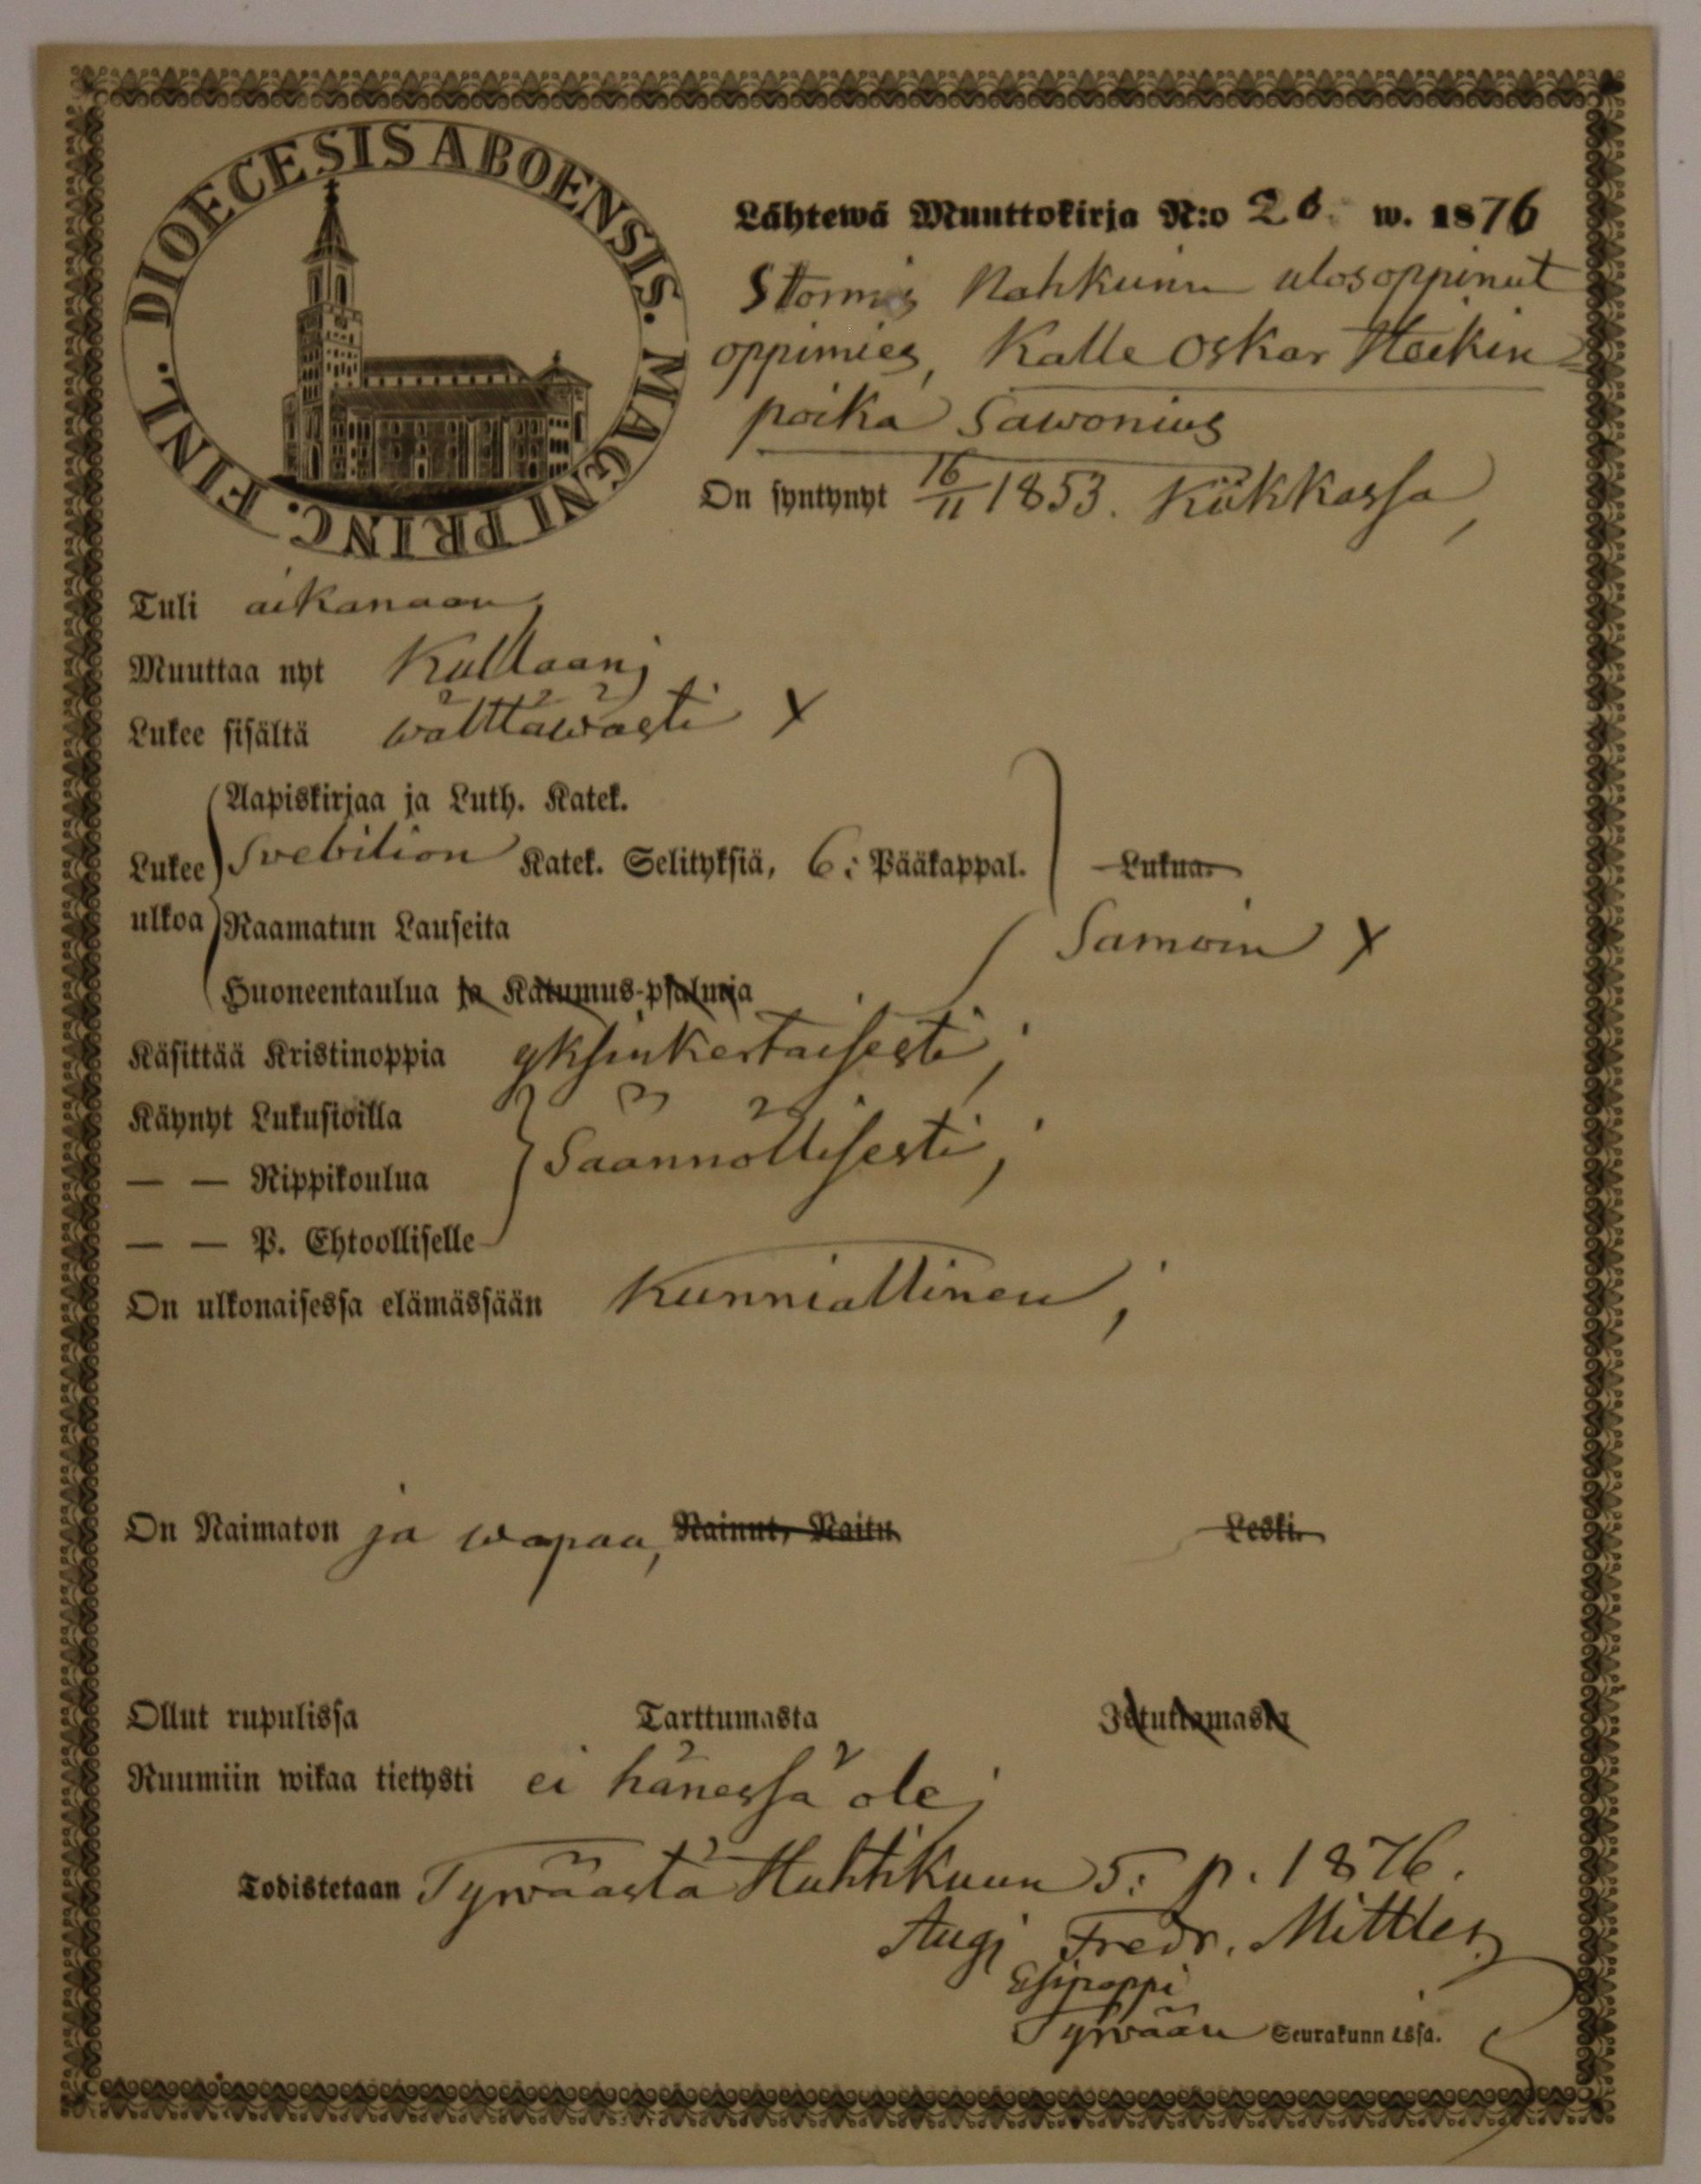 DIOECESIS ABOENSIS. MAGNI PRINC. FINL.
Lähtewä Muuttokirja N:o 26. w. 1876
Stormis Nahkurin ulosoppinut
oppimies, Kalle Oskar Heikin
poika Sawonius
On syntynyt 16/11 1853. Kiikkassa,
Tuli aikanaan,
Muuttaa nyt Kullaan;
Lukee sisältä wälttäwästi X
Aapiskirjaa ja Luth. Katek.
Lukee ulkoa Svebilion Katek. Selityksiä, 6: Pääkappal. Lukua.
Raamatun Lauseita Samoin X
Huoneentaulua ja Katumus-psalmia
Käsittää Kristinoppia yksinkertaisesti;
Käynyt Lukusioilla
— — Rippikoulua Säännöllisesti;
— — P. Ehtoolliselle
On ulkonaisessa elämässään Kunniallinen;
On Naimaton ja wapaa, Nainut, Naitu Leski.
Ollut rupulissa Tarttumasta Istuttamasta
Ruumiin wikaa tietysti ei hänessä ole;
Todistetaan Tyrwäästä Huhtikuun 5: p. 1876.
Aug. Fredr. Mittler
Esipappi
Tyrwään Seurakunnassa.